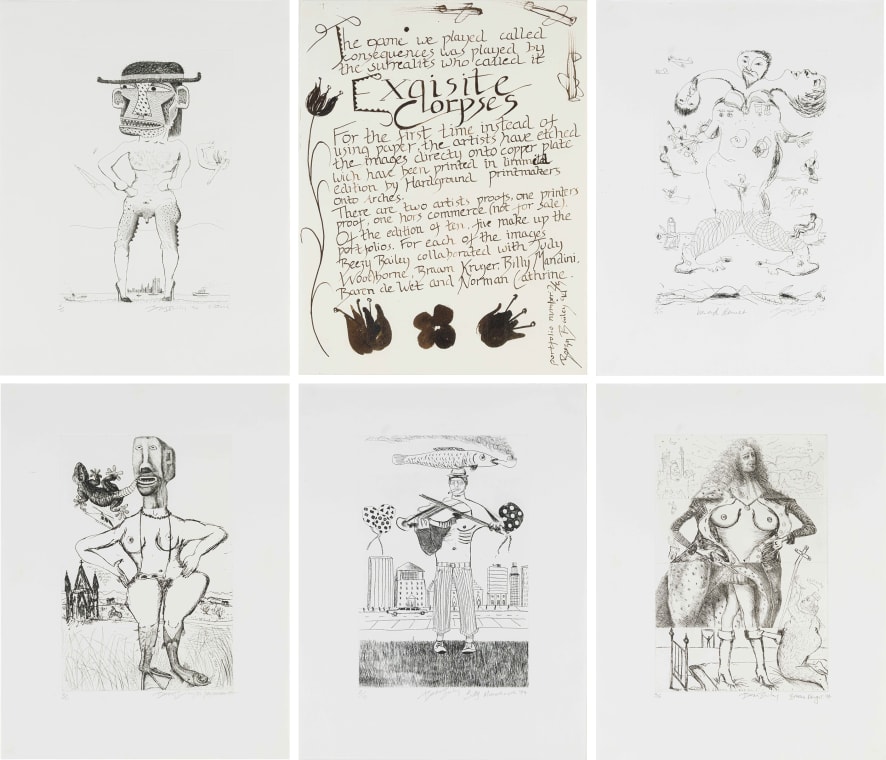 The game we played called
consequences was played by
the surrealits who called it
Exqisite
Corpses
For the first time instead of
using paper, the artists have etched
the images directly onto copper plate
wich have been printed in limmited
edition by Hardground printmakers
onto Arches.
There are two artists proofs, one printers
proof, one hors commerce (not for sale).
Of the edition of ten, five make up the
portfolios. For each of the images
Beezy Bailey collaborated with Judy
Woodborne, Braam Kruger, Billy Mandini,
Baren de Wet and Norman Cathrine.
portfolio number
Beezy Bailey